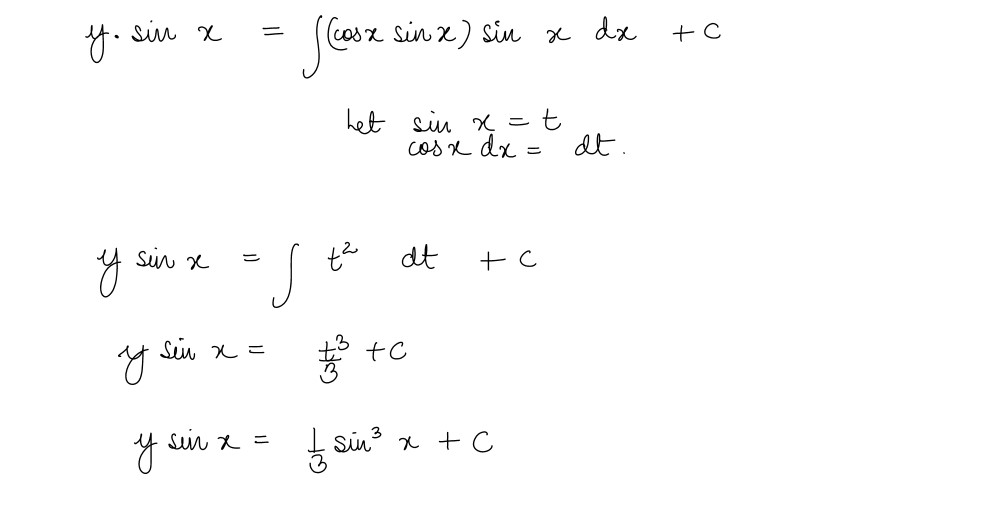 y. sin x = ∫(cos x sin x) sin x dx + c
Let sin x = t
cos x dx = dt.
y sin x = ∫ t² dt + c
y sin x = t³/3 + c
y sin x = 1/3 sin³ x + C